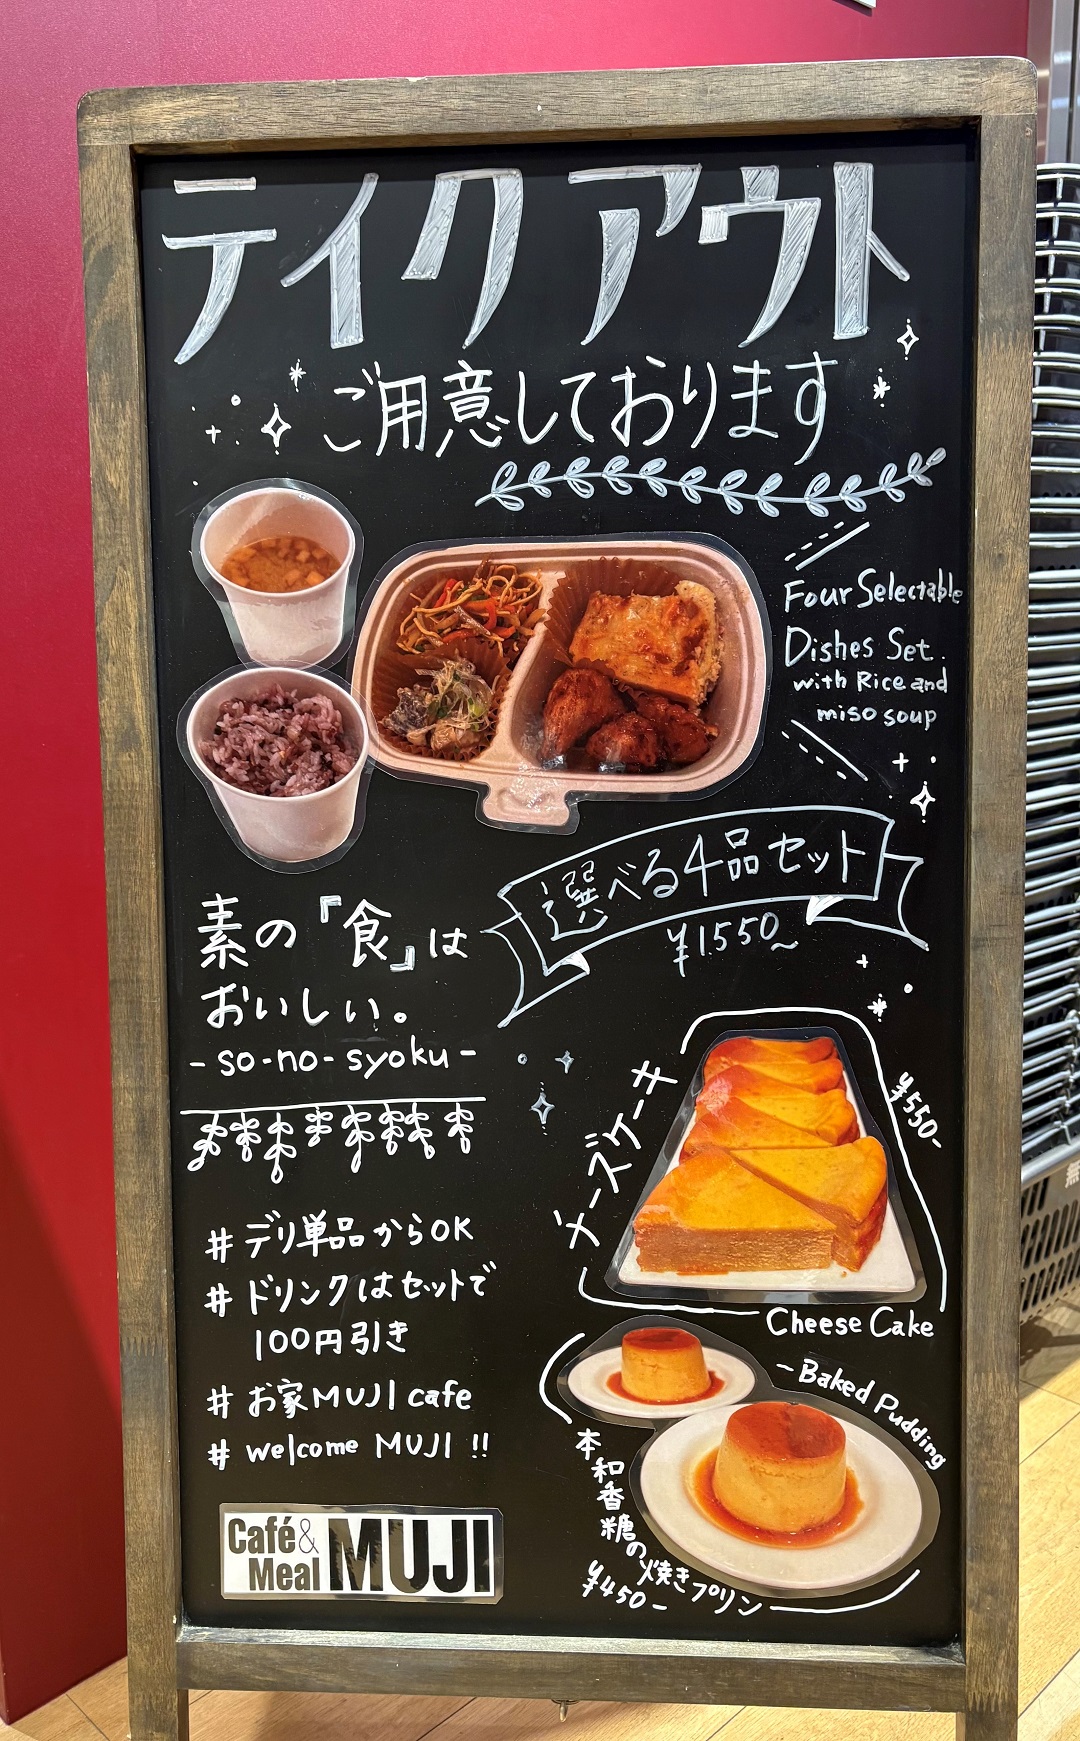 テイクアウト
ご用意しております
Four Selectable
Dishes Set.
with Rice and
miso soup
選べる4品セット
¥1.550~
素の『食』は
おいしい。
-so-no-syoku-
チーズケーキ
¥550-
Cheese Cake
# デリ単品からOK
# ドリンクはセットで
100円引き
# お家MUJI cafe
# welcome MUJI !!
-Baked Pudding
本和香糖の焼きプリン
¥450-
Café&
Meal
MUJI